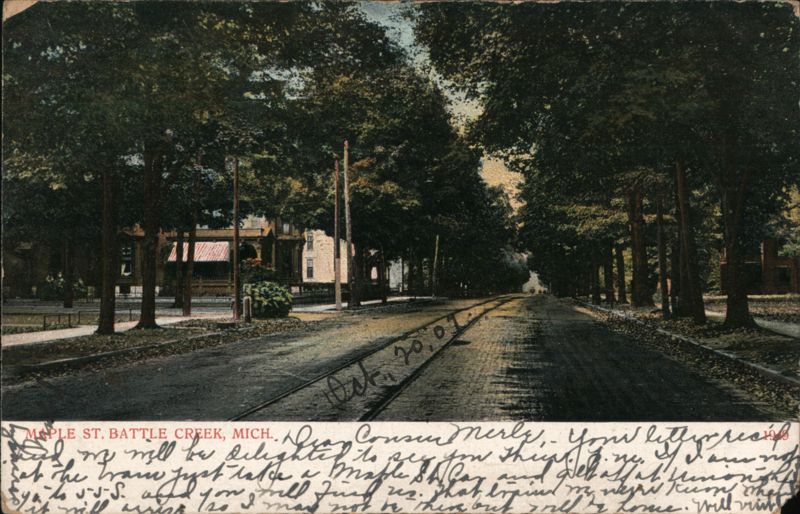 Oct., 20.07
MAPLE ST. BATTLE CREEK, MICH. Dear Cousin Merle, - Your letter rec'd
and we will be delighted to see you Thurs. Eve. If I am not
at the train just take a Maple St. Car and get off at
to 255. and you will find us. That train we never know when
it will arrive so I may not be there but will be home. Will